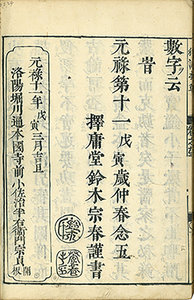 數字云
旹
元祿第十一戊寅歲仲春念五
擇庸堂鈴木宗春謹書
元禄十一年戊寅三月吉旦
洛陽堀川通本國寺前小佐治半右衛門宗貞開板